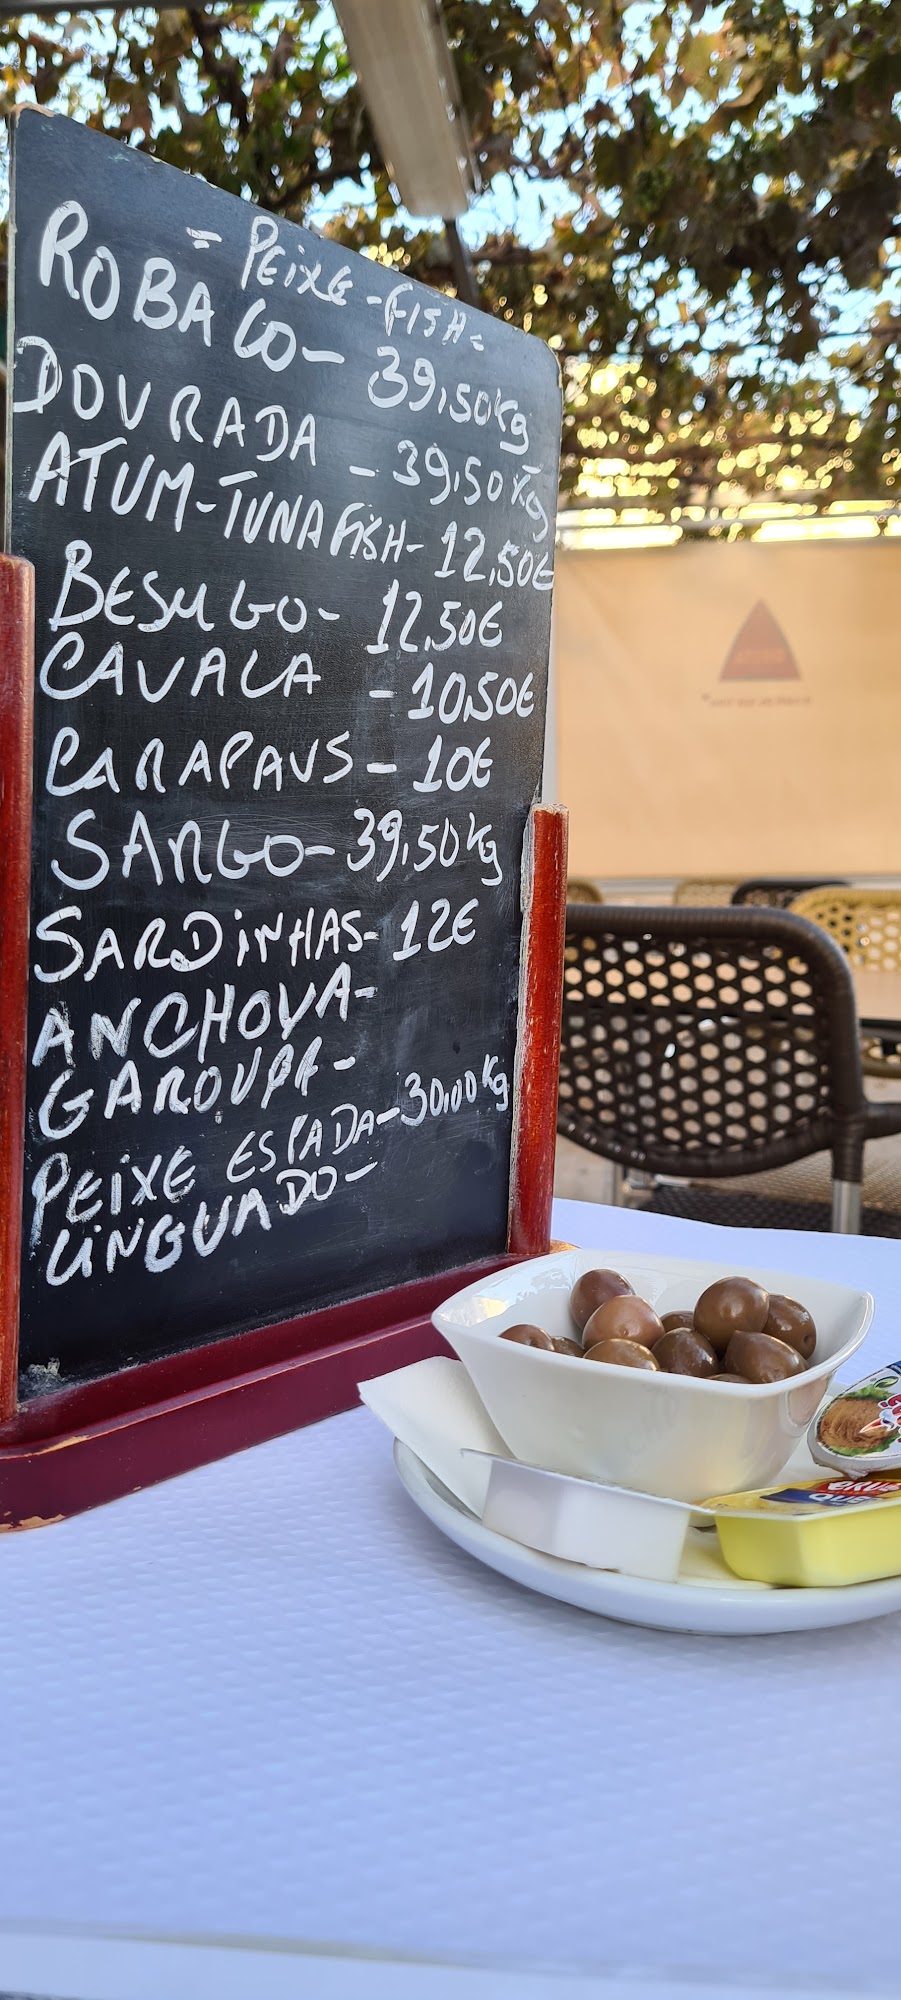 - PEIXE - FISH -
ROBALO - 39,50kg
DOURADA - 39,50kg
ATUM - TUNA FISH - 12,50€
BESUGO - 12,50€
CAVALA - 10,50€
CARAPAUS - 10€
SARGO - 39,50kg
SARDINHAS - 12€
ANCHOVA -
GAROUPA -
PEIXE ESPADA - 30,00kg
LINGUADO -